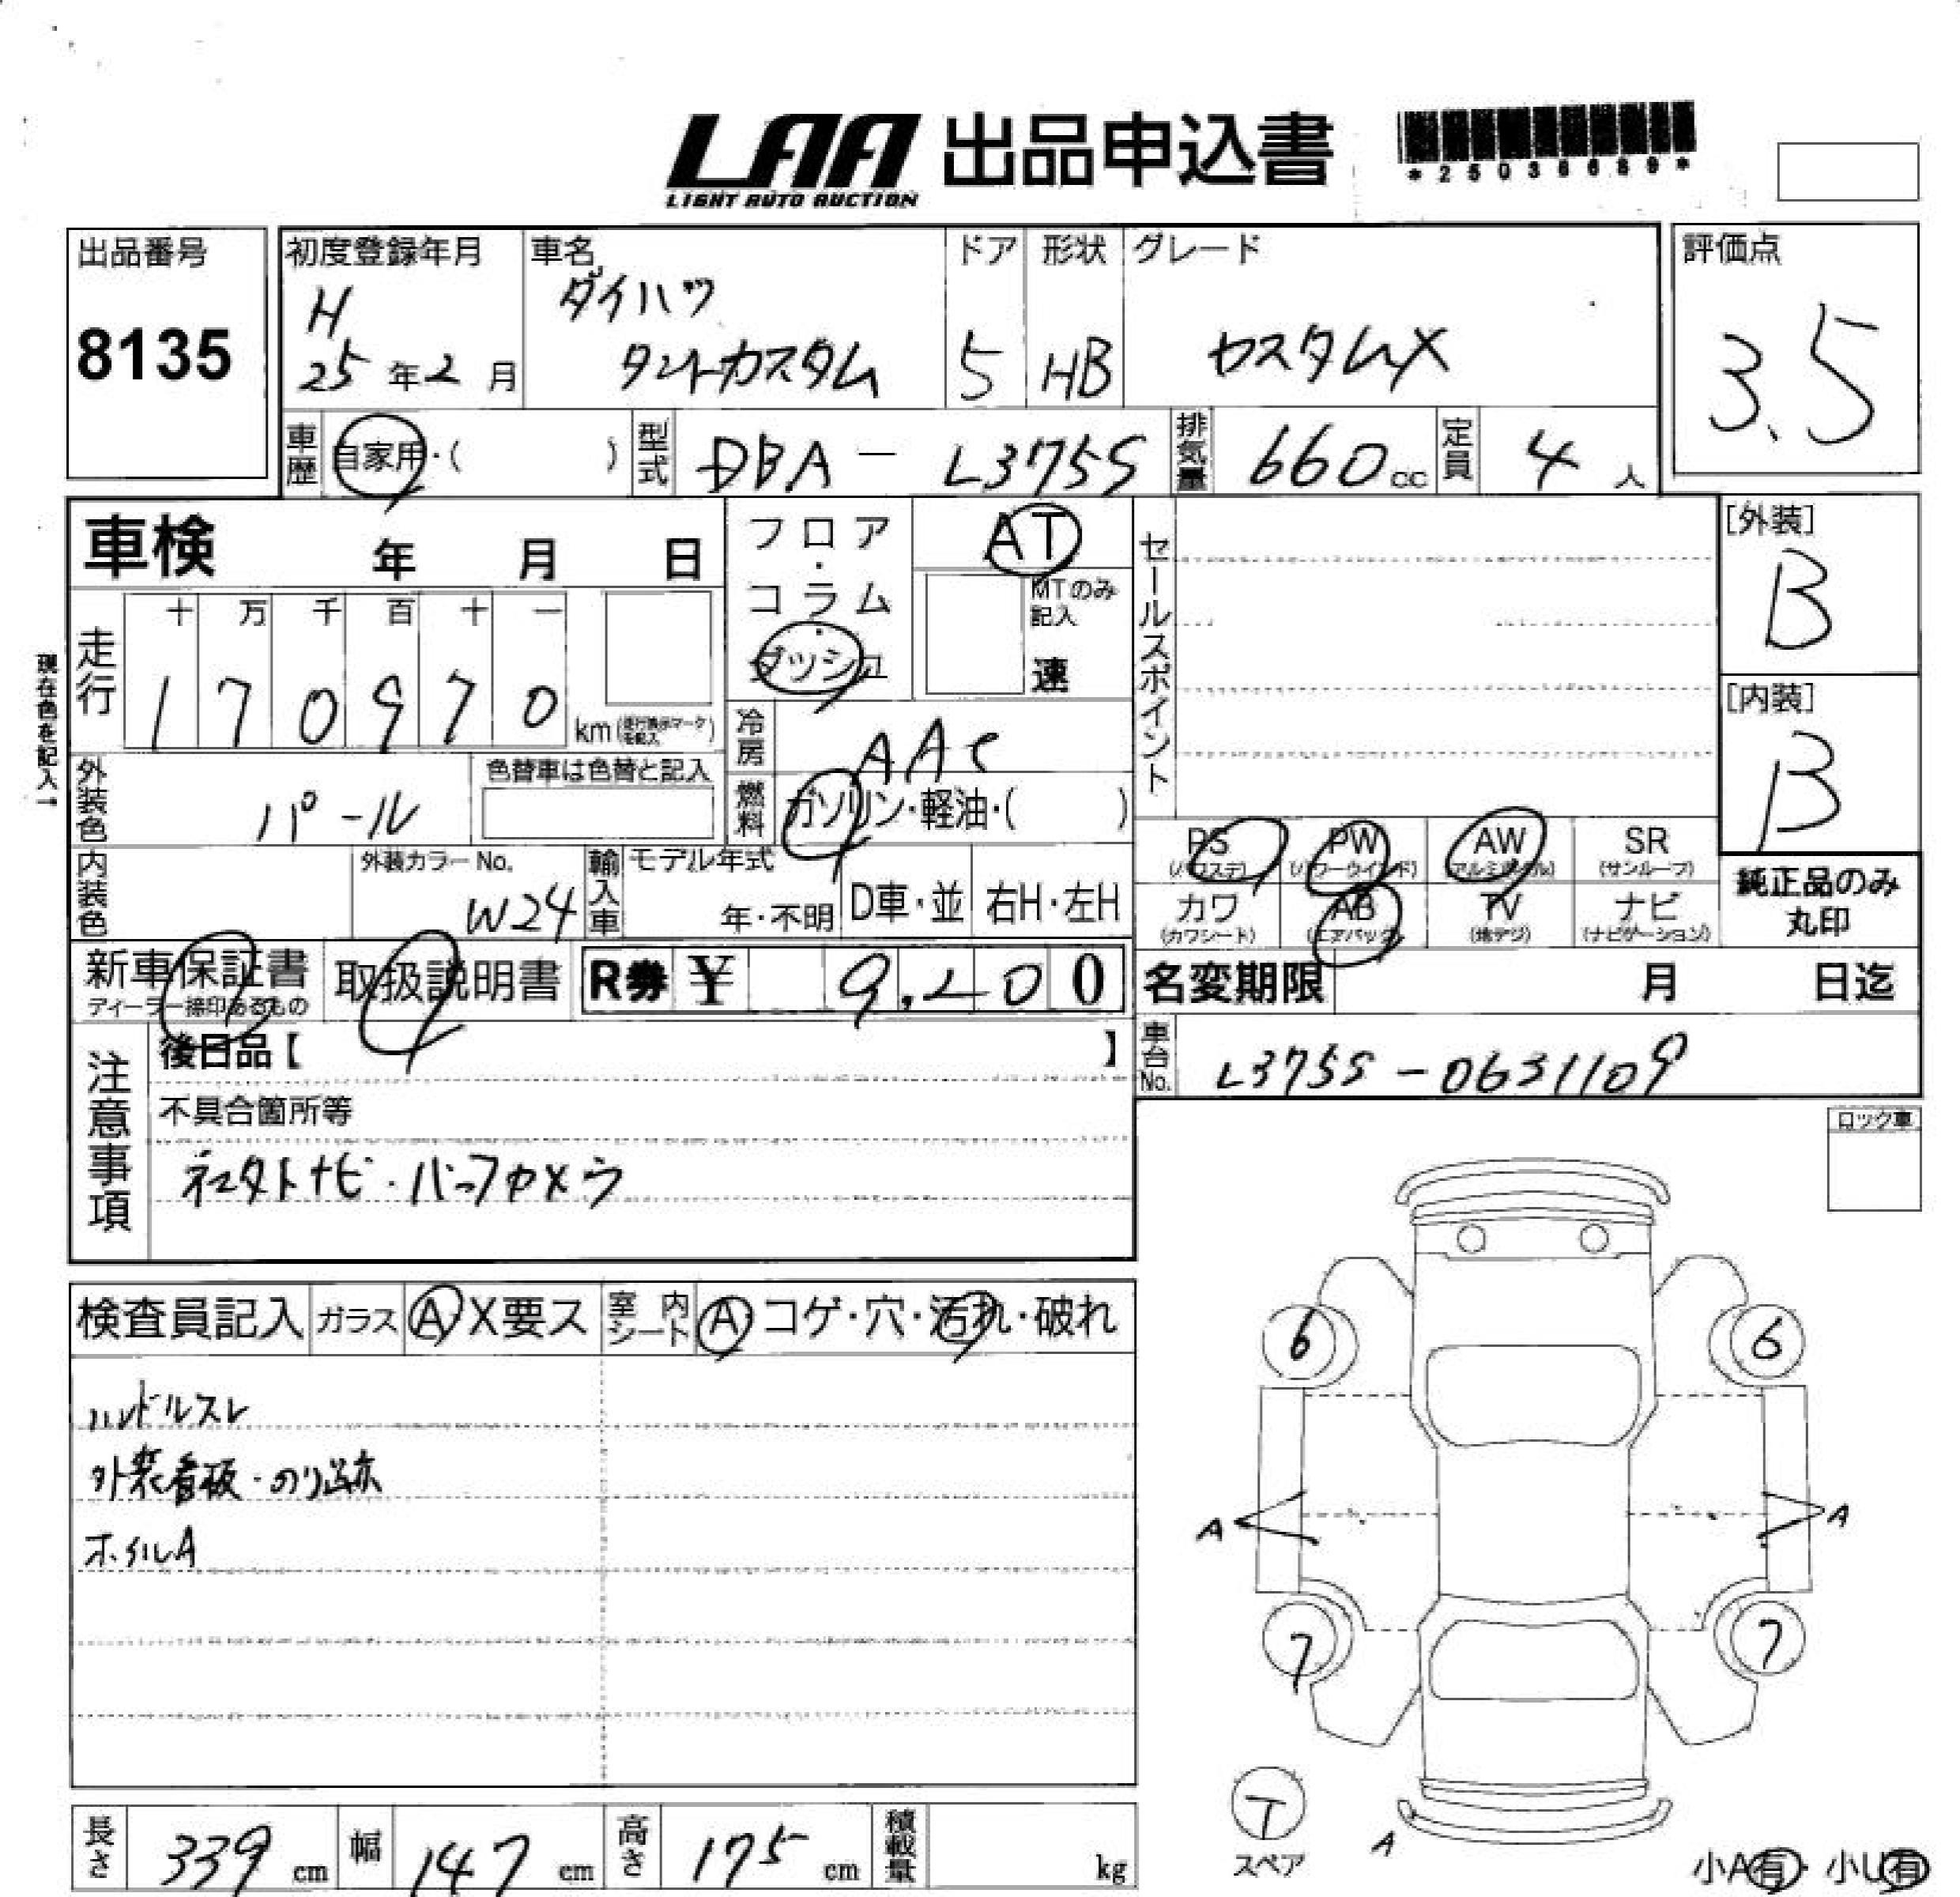 LAA 出品申込書
LIGHT AUTO AUCTION
*25036689*
出品番号
8135
初度登録年月
H
25年2月
車名
ダイハツ
タントカスタム
ドア
5
形状
HB
グレード
カスタムX
評価点
3.5
車歴 自家用・( )
型式 DBA - L375S
排気量 660cc
定員 4人
車検 年 月 日
フロア・コラム・ダッシュ
AT
MTのみ記入
速
セールスポイント
[外装]
B
[内装]
B
現在色を記入→
走行
十 万 千 百 十 一
1 7 0 9 7 0 km(走行表示マークを記入)
冷房 AAC
燃料 ガソリン・軽油・( )
外装色 パール
色替車は色替と記入
内装色
外装カラーNo.
W24
輸入車
モデル年式
年・不明
D車・並
右H・左H
PS (パワステ)
PW (パワーウインド)
AW (アルミホイル)
SR (サンルーフ)
カワ (カワシート)
AB (エアバッグ)
TV (地デジ)
ナビ (ナビゲーション)
純正品のみ丸印
新車保証書
ディーラー捺印あるもの
取扱説明書
R券 ¥ 9,200
名変期限 月 日迄
車台No. L375S-0631109
注意事項
後日品【 】
不具合箇所等
社外ナビ・バックカメラ
ロック車
検査員記入
ガラス A X要ス
室内シート A コゲ・穴・汚れ・破れ
ハンドルスレ
外装看板・のり跡
ホイルA
6 6
A A
7 7
T
スペア
A
小A有・小U有
長さ 339 cm
幅 147 cm
高さ 175 cm
積載量 kg